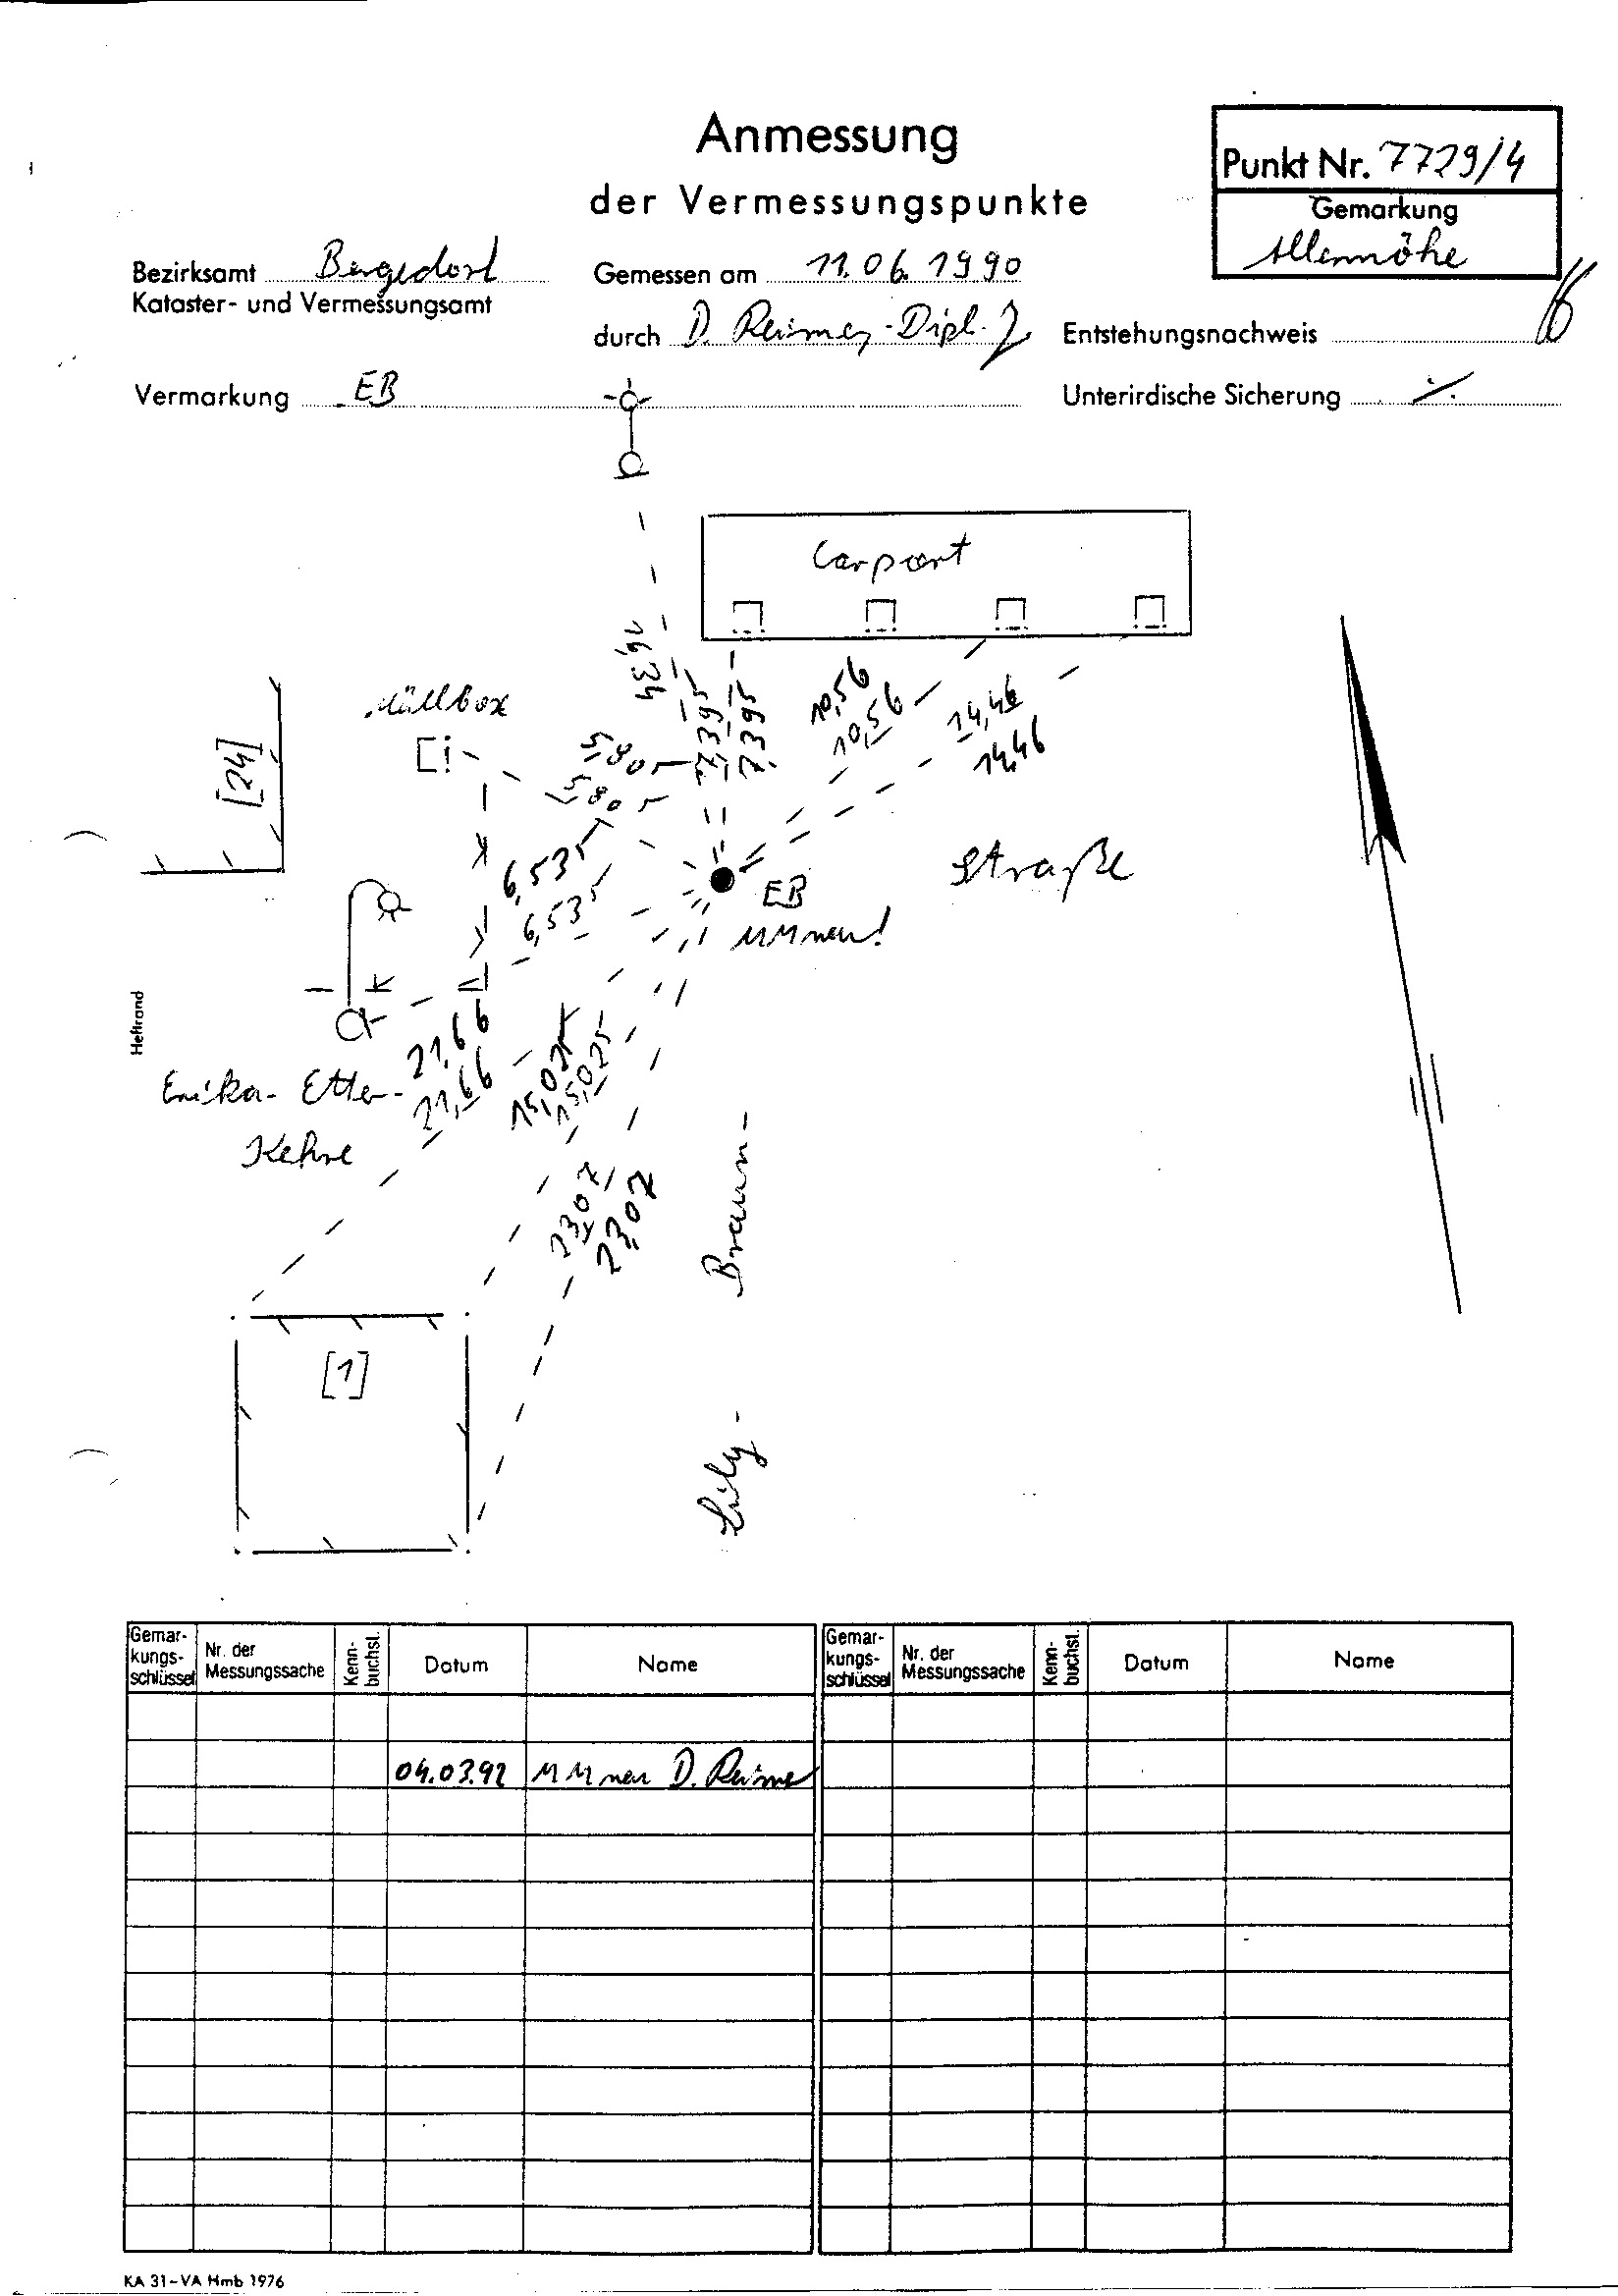 Anmessung
der Vermessungspunkte
Punkt Nr. 7729/4
Gemarkung
Allermöhe
Bezirksamt Bergedorf
Kataster- und Vermessungsamt
Gemessen am 11.06.1990
durch D. Reimer, Dipl.-
Entstehungsnachweis
Vermarkung EB
Unterirdische Sicherung ./.
Carport
16,34
Müllbox
[24]
5,805
5,805
7,395
7,395
10,56
10,56
14,46
14,46
6,535
6,535
EB
MM neu!
Straße
Heftrand
Erika- Etter-
Kehre
21,66
21,66
15,025
15,025
23,07
23,07
Braun-
Lily-
[1]
Gemar-
kungs-
schlüssel
Nr. der
Messungssache
Kenn-
buchst.
Datum
Name
Gemar-
kungs-
schlüssel
Nr. der
Messungssache
Kenn-
buchst.
Datum
Name
04.03.92 MM neu D. Reimer
KA 31-VA Hmb 1976